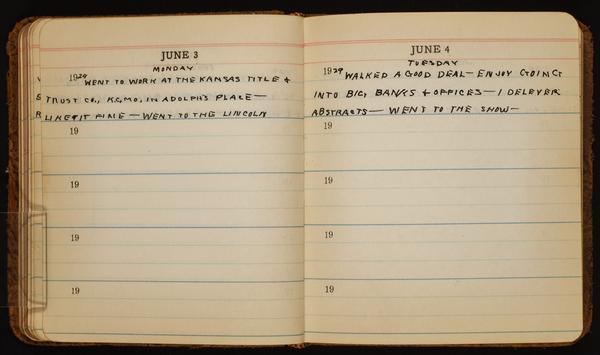 JUNE 3
MONDAY
1929 WENT TO WORK AT THE KANSAS TITLE +
TRUST CO., K.C, MO, IN ADOLPH'S PLACE —
LIKE IT FINE — WENT TO THE LINCOLN
19
19
19
19
JUNE 4
TUESDAY
1929 WALKED A GOOD DEAL — ENJOY GOING
INTO BIG BANKS + OFFICES — I DELEVER
ABSTRACTS — WENT TO THE SHOW —
19
19
19
19